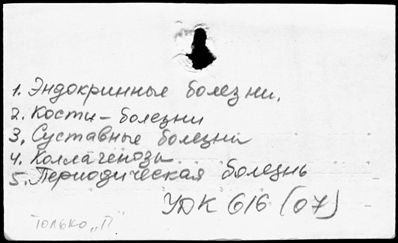 1. Эндокринные болезни.
2. Кости - болезни
3. Суставные болезни
4. Коллагенозы
5. Периодическая болезнь
УДК 616 (07)
только „П"